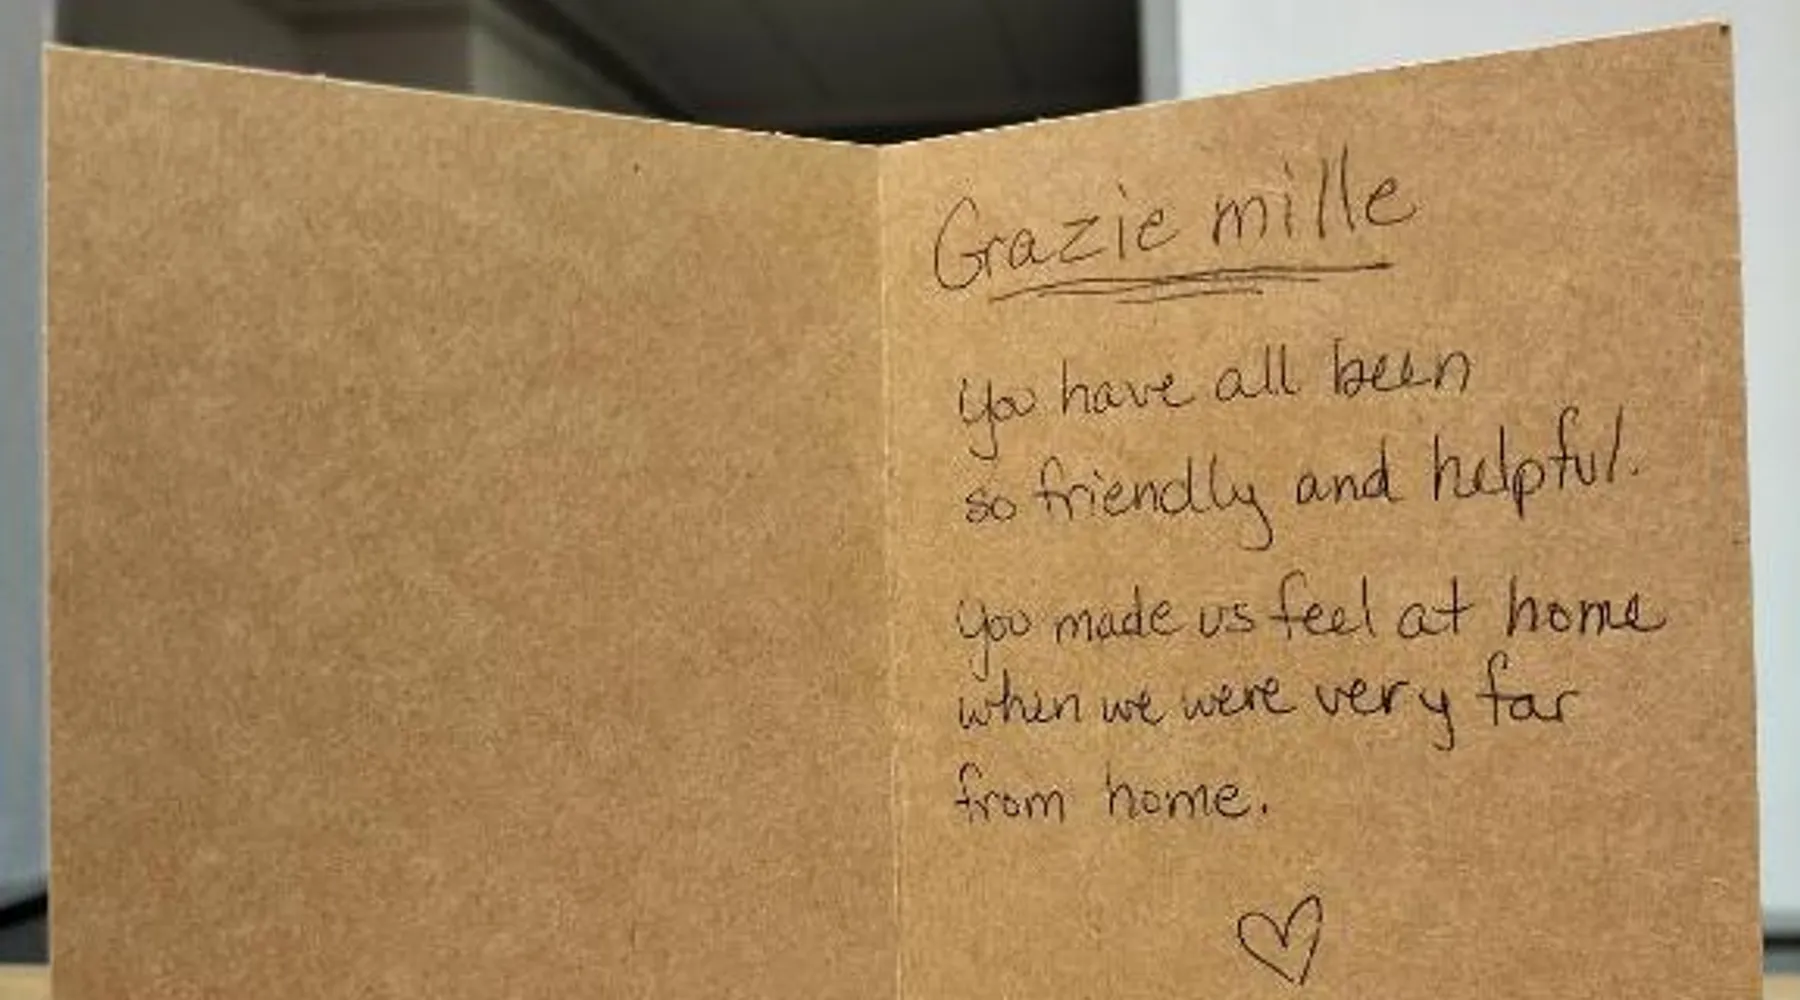 Grazie mille
You have all been
so friendly and helpful.
You made us feel at home
when we were very far
from home.